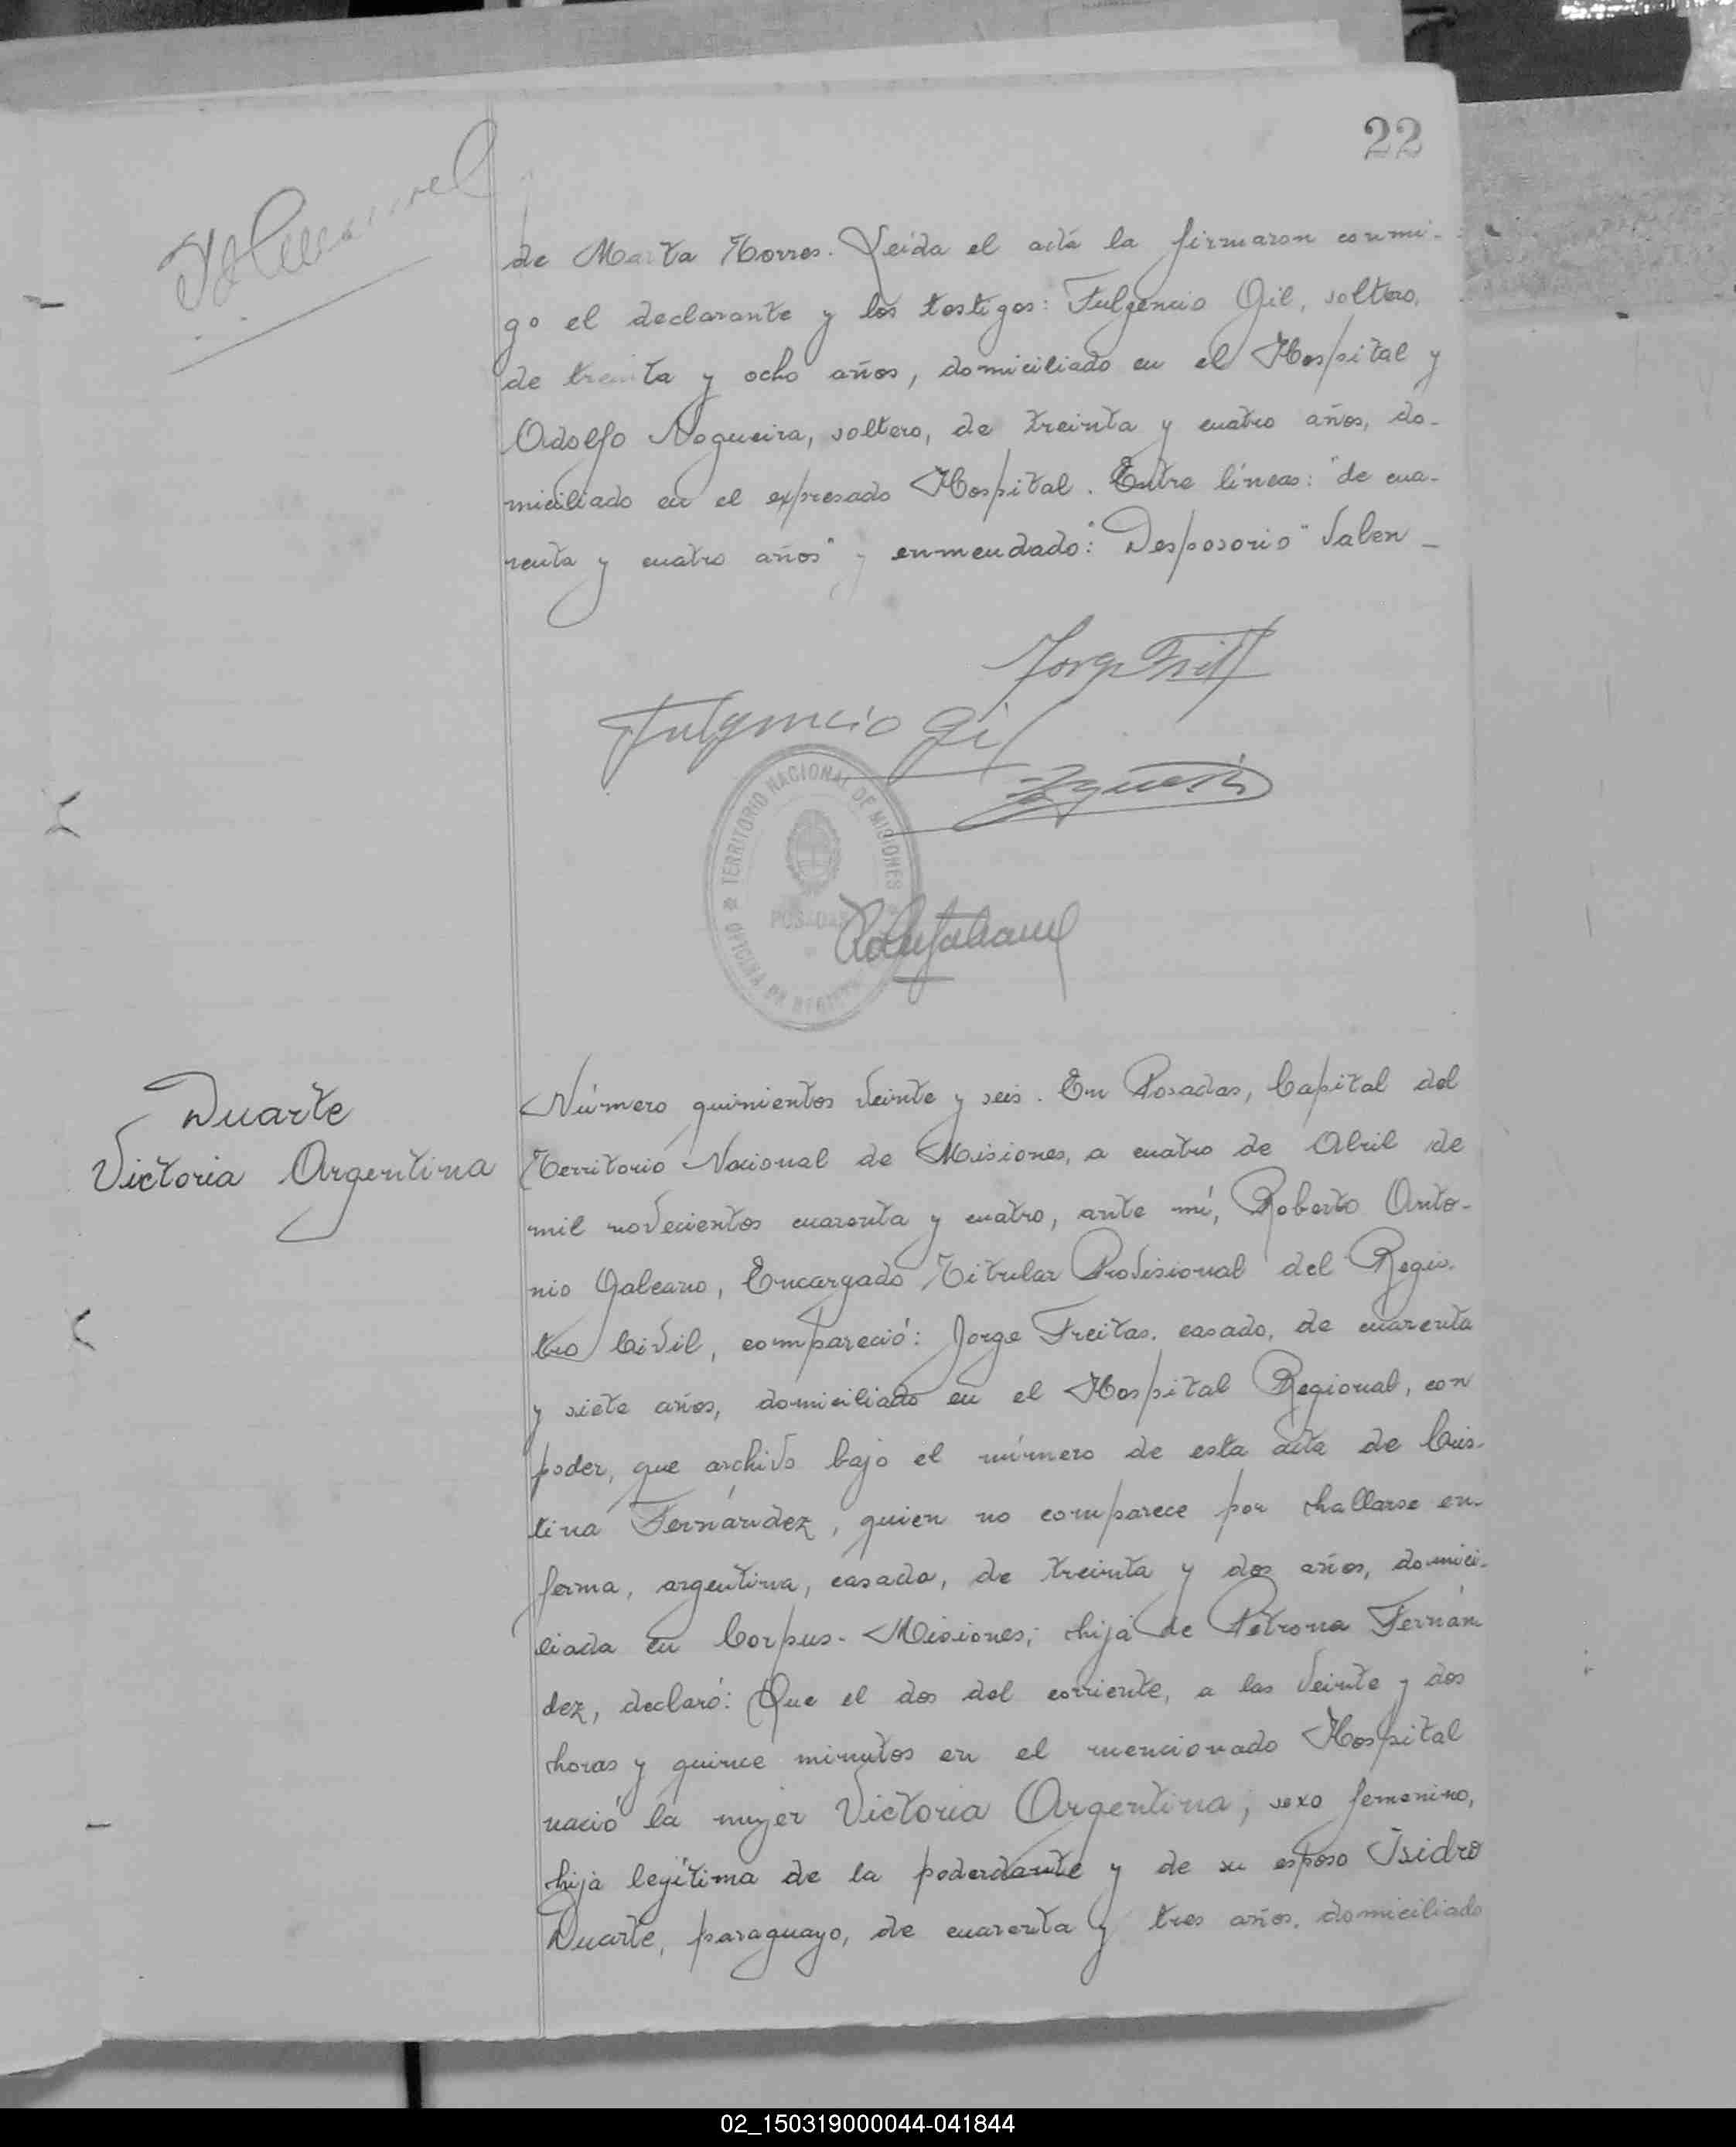 22
de Marta Torres. Leída el acta la firmaron conmi-
go el declarante y los testigos: Fulgencio Gil, soltero,
de treinta y ocho años, domiciliado en el Hospital y
Adolfo Nogueira, soltero, de treinta y cuatro años, do-
miciliado en el expresado Hospital. Entre líneas: "de cua-
renta y cuatro años" y enmendado: "Desposorio" Valen_
Fulgencio Gil
TERRITORIO NACIONAL DE MISIONES
POSADAS
OFICINA DE REGISTRO
Duarte
Victoria Argentina
Número quinientos veinte y seis. En Posadas, Capital del
Territorio Nacional de Misiones, a cuatro de Abril de
mil novecientos cuarenta y cuatro, ante mí, Roberto Anto-
nio Galeano, Encargado Titular Provisional del Regis-
tro Civil, compareció: Jorge Freitas, casado, de cuarenta
y siete años, domiciliado en el Hospital Regional, con
poder, que archivo bajo el número de esta acta de Cris-
tina Fernández, quien no comparece por hallarse en-
ferma, argentina, casada, de treinta y dos años, domici-
liada en Corpus-Misiones; hija de Petrona Fernán
dez, declaró: Que el dos del corriente, a las veinte y dos
horas y quince minutos en el mencionado Hospital
nació la mujer Victoria Argentina, sexo femenino,
hija legítima de la poderdante y de su esposo Isidro
Duarte, paraguayo, de cuarenta y tres años, domiciliado
02_150319000044-041844